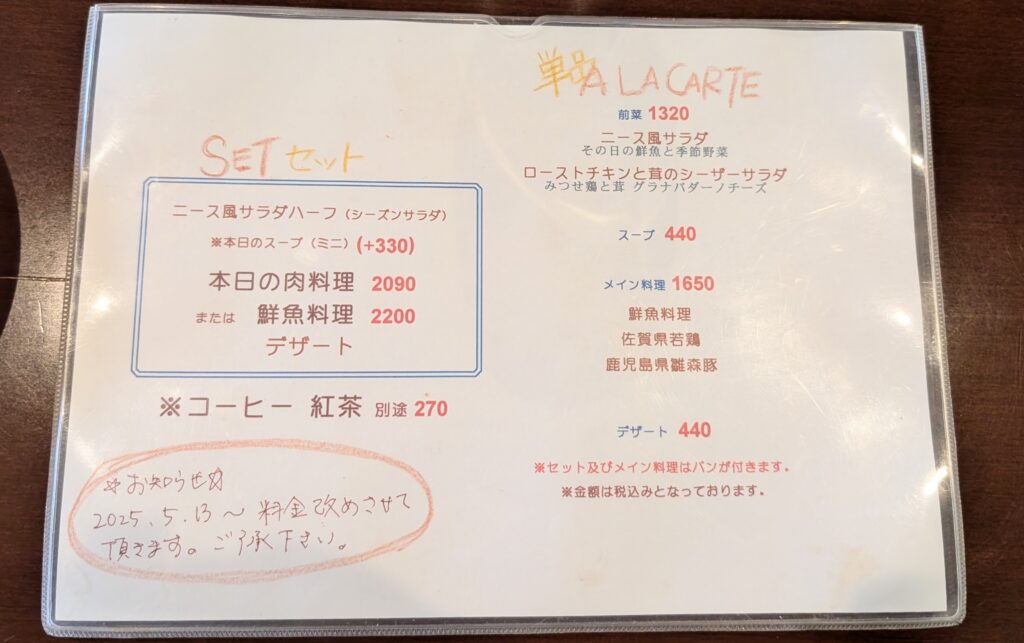 SET セット
ニース風サラダハーフ（シーズンサラダ）
※本日のスープ（ミニ）(+330)
本日の肉料理 2090
または 鮮魚料理 2200
デザート
※コーヒー 紅茶 別途 270
※お知らせ※
2025.5.13～料金改めさせて
頂きます。ご了承下さい。
単品 A LA CARTE
前菜 1320
ニース風サラダ
その日の鮮魚と季節野菜
ローストチキンと茸のシーザーサラダ
みつせ鶏と茸 グラナパダーノチーズ
スープ 440
メイン料理 1650
鮮魚料理
佐賀県若鶏
鹿児島県雛森豚
デザート 440
※セット及びメイン料理はパンが付きます。
※金額は税込みとなっております。